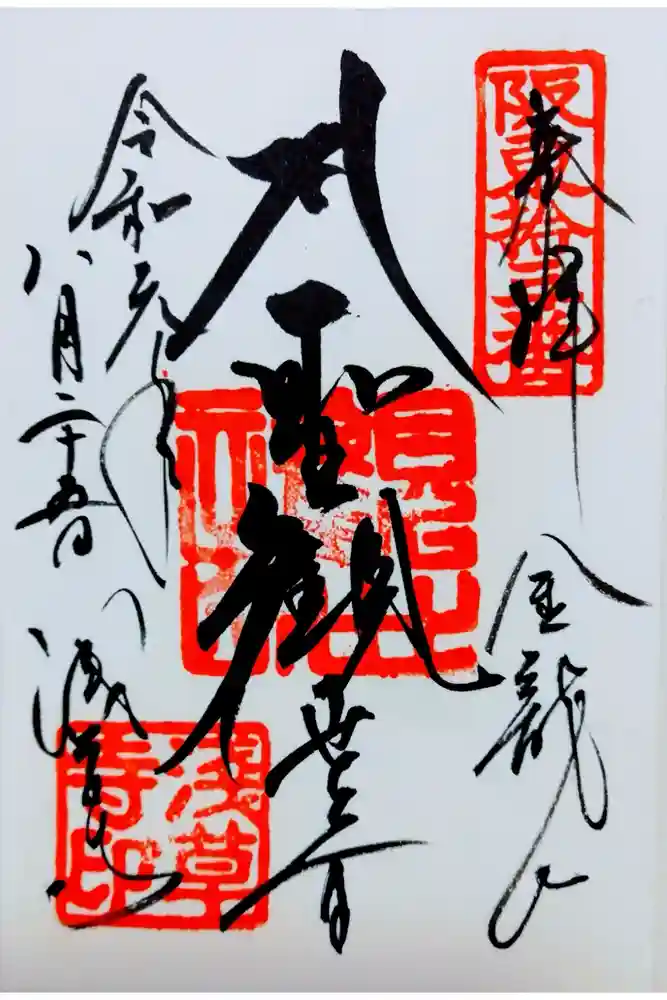 阪東拾三番
奉拝
金龍山
聖観世音
令和元年
八月二十五日
浅草寺
浅草寺印